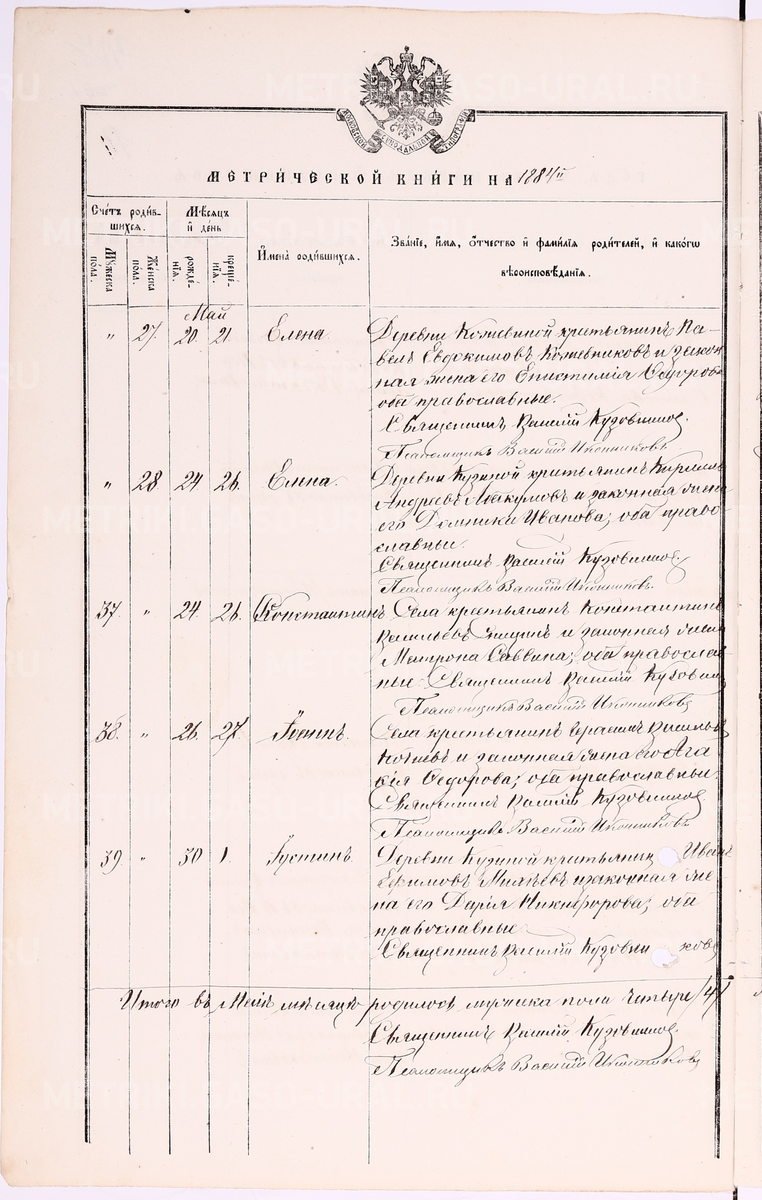 МЕТРИ́ЧЕСКОЙ КНИ́ГИ НА 1884 й
Сче́тъ роди́в-
шихся.
Мѣ́сяцъ
и҆ де́нь
Мꙋ́жеска
по́ла.
Же́нска
по́ла.
рожде́-
нїѧ.
креще́-
нїѧ.
И҆мена̀ роди́вшихся.
Зва́нїе, и҆́мя, ѻ҆́тчество и҆ фами́лїя роди́телей, и҆ како́гѡ
вѣ́роисповѣ́данїя.
Май
" 27. 20. 21. Елена. Деревни Кожевиной крестьянинъ Па-
велъ Евдокимовъ Кожевниковъ и закон
ная жена его Епистимія Ѳедорова
оба православные.
Священникъ Василій Кузовниковъ.
Псаломщикъ Василій Иконниковъ
" 28 24 26. Елена. Деревни Кузиной крестьянинъ Кириллъ
Андреевъ и законная жена
его Домника Иванова; оба право-
славны.
Священникъ Василій Кузовниковъ.
Псаломщикъ Василій Иконниковъ.
37. " 24. 26. Константинъ. Села крестьянинъ Константинъ
Васильевъ и законная жена
Матрона Саввина; оба православ-
ные. Священникъ Василій Кузовник
Псаломщикъ Василій Иконниковъ
38. " 26. 27. Іосиѳъ. Села крестьянинъ Герасимъ Васильевъ
и законная жена его Ага
ѳія Ѳедорова; оба православны.
Священникъ Василій Кузовниковъ.
Псаломщикъ Василій Иконниковъ
39 " 30 1. Іустинъ. Деревни Кузиной крестьянинъ Иванъ
Ефимовъ и законная же
на его Дарія Никифорова; оба
православные
Священникъ Василій Кузовни ковъ
Итого въ Маѣ мѣсяцѣ родилось мужска пола четыре /4/
Священникъ Василій Кузовниковъ.
Псаломщикъ Василій Иконниковъ